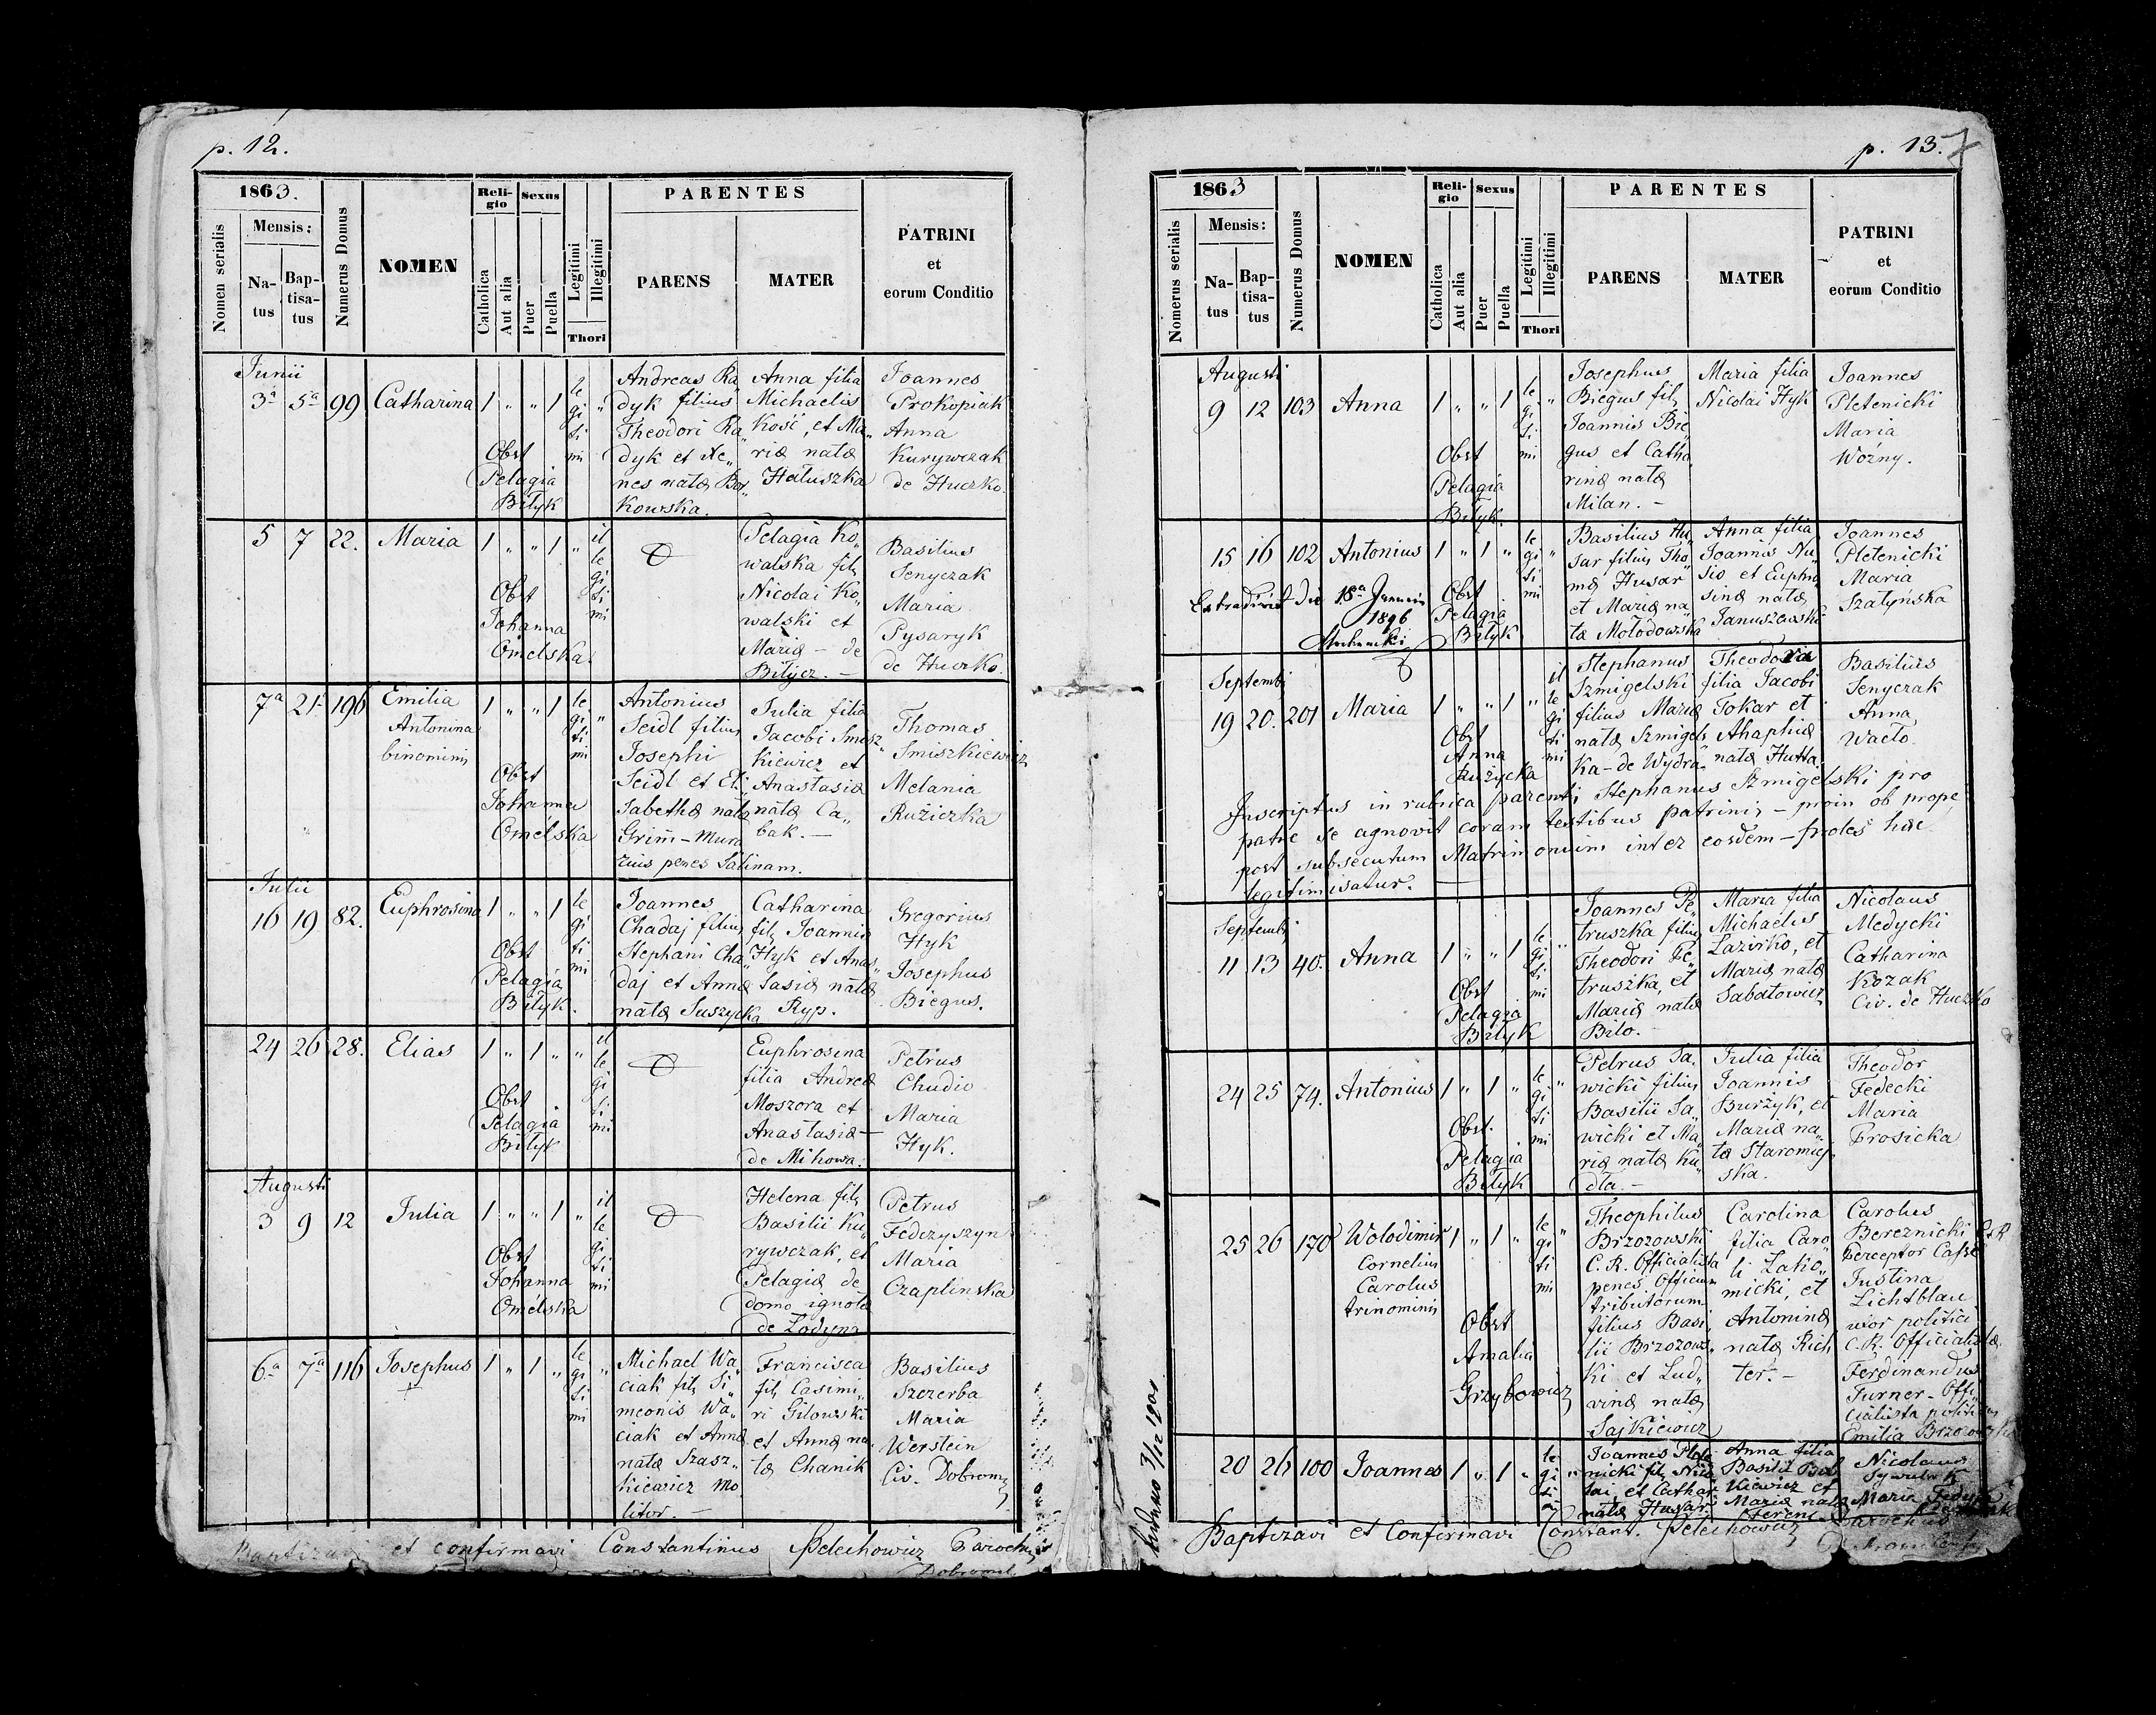 p. 12.
1863.
Nomen serialis
Mensis:
Na-
tus
Bap-
tisa-
tus
Numerus Domus
NOMEN
Reli-
gio
Catholica
Aut alia
Sexus
Puer
Puella
Legitimi
Illegitimi
Thori
PARENTES
PARENS
MATER
PATRINI
et
eorum Conditio
Junii
3a 5a 99 Catharina 1 " " 1
le
gi "
ti
mi
Obst
Pelagia
Bilyk
Andreas Ra„
dyk filius
Theodori Ra„
dyk et Ag„
nes natæ Bor„
kowska.
Anna filia
Michaelis
Kosü, et Ma„
riæ natæ
Hałuszka
Joannes
Prokopiak
Anna
Kurywczak
de Huczko.
5 7 22. Maria 1 " " 1 "
il
le
gi
ti
mi
Obst
Johanna
Omelska.
Pelagia Ko„
walska fil,
Nicolai Ko„
walski et
Mariæ – de
Bilycz. –
Basilius
Senyczak
Maria
Pysaryk
de Huczko.
7a 21 196 Emilia 1 " " 1
Antonina
binominis
le
gi "
ti
mi
Obst
Johanna
Omelska
Antonius
Seidl filius
Josephi
Seidl et Eli„
sabethæ natæ
Grim̄ – Mura
rius penes Salinam.
Julia filia
Jacobi Smosz„
kiewicz et
Anastasiæ
natæ Ca„
bak. –
Thomas
Smiszkiewicz
Melania
Ružiczka
Julii
16 19 82. Euphrosina 1 " " 1
le
gi "
ti
mi
Obst
Pelagia
Bilyk.
Joannes
Chadaj filius
Stephani Cha„
daj et Annæ
natæ Suszycka
Catharina
fil, Joannis
Hyk et Anas„
tasiæ natæ
Ryp.
Gregorius
Hyk
Josephus
Biegus.
24 26 28. Elias 1 " 1 " "
il
le
gi
ti
mi
Obst
Pelagia
Bilyk
Euphrosina
filia Andreæ
Moszora et
Anastasiæ –
de Mihowa.
Petrus
Chudio
Maria
Hyk.
Augusti
3 9 12 Julia 1 " " 1 "
il
le
gi
ti
mi
Obst
Johanna
Omelska
Helena fil,
Basilii Ku„
rywczak, et
Pelagiæ de
domo ignotæ
de Lodyna
Petrus
Fedczyszyn
Maria
Czaplinska
6a 7a 116 Josephus 1 " 1 "
le
gi "
ti
mi
Michael Wa„
ciak fil, Si„
meonis Wa„
ciak et Annæ
natæ Szasz„
kiewicz Mo„
litor. –
Francisca
fil, Casimi„
ri Gilowski
et Annæ na„
tæ Chanik
Basilius
Szczerba
Maria
Werstein
Civ. Dobrom,
Baptizavi et confirmavi Constantinus Pelechowicz Parochus
Dobromil
p. 13.
1863
Numerus serialis
Mensis:
Na-
tus
Bap-
tisa-
tus
Numerus Domus
NOMEN
Reli-
gio
Catholica
Aut alia
Sexus
Puer
Puella
Legitimi
Illegitimi
Thori
PARENTES
PARENS
MATER
PATRINI
et
eorum Conditio
Augusti
9 12 103 Anna 1 " " 1
le
gi "
ti
mi
Obst
Pelagia
Bilyk.
Josephus
Biegus fil,
Joannis Bie„
gus et Catha„
rinæ natæ
Milan. –
Maria filia
Nicolai Hyk
Joannes
Pletenicki
Maria
Wožny.
15 16 102 Antonius 1 " 1 "
le
gi "
ti
mi
Obst
Pelagia
Bilyk
Extradivit die 18a
1896
Basilius Hu„
sar filius Tho„
mæ Husar
et Mariæ na„
tæ Mołodowska
Anna filia
Joannis Nu„
sio et Euphro„
sinæ natæ
Januszewski
Joannes
Pletenicki
Maria
Szatyńska
Septembi
19 20. 201 Maria 1 " " 1 "
il
le
gi
ti
mi
Obst
Anna
Ružycka
Stephanus
Szmigelski
filius Mariæ
natæ Szmigels„
ka – de Wydra„
Theodoria
filia Jacobi
Tokar et
Ahaphiæ
natæ Hutta.
Basilius
Senyczak
Anna
Wacto.
Inscriptus in rubrica parenti, Stephanus Szmigelski pro
patre se agnovit coram testibus patrinis – proin ob prope
post subsecutum Matrimonium inter eosdem – proles hæc
legitimisatur. –
Septembi
11 13 40. Anna 1 " " 1
le
gi "
ti
mi
Obst
Pelagia
Bilyk
Joannes Pe„
truszka filius
Theodori Pe„
truszka, et
Mariæ natæ
Bilo. –
Maria filia
Michaelis
Lazirko, et
Mariæ natæ
Sabatowicz
Nicolaus
Medycki
Catharina
Kozak
Civ. de Huczko
24 25 74. Antonius 1 " 1 "
le
gi "
ti
mi
Obst.
Pelagia
Bilyk
Petrus Sa„
wicki filius
Basilii Sa„
wicki et Ma„
riæ natæ Ku„
dla. –
Julia filia
Joannis
Buržyk, et
Mariæ na„
tæ Staromiej„
ska.
Theodor
Fedecki
Maria
Prosicka
25 26 170 Wolodimir 1 " 1 "
Cornelius
Carolus
trinominis
le
gi "
ti
mi
Obst
Amalia
Grzybowicz
Theophilus
Brzozowski
C. R. Officialista
penes Officium
tributorum
filius Basi„
lii Brzozows„
ki et Lud„
vinæ natæ
Sajkiewicz
Carolina
filia Caro„
li Zaho„
micki, et
Antoninæ
natæ Rich„
ter. –
Carolus
Bereznicki C. R
Perceptor Cassæ
Justina
Lichtblau
uxor politici
C. R. Officialistæ.
Ferdinandus
Turner – Offi„
cialista politicus
Emilia Brzozowska
20 26 100 Joannes 1 " 1 "
le
gi "
ti
mi
Joannes Plete„
nicki fil, Nico„
lai, et Cathar.
natæ Husar.
Anna filia
Basilii
kiewicz et
Mariæ natæ
Ferenc
Nicolaus
Maria
Baptizavi et Confirmavi Constant. Pelechowicz Parochus